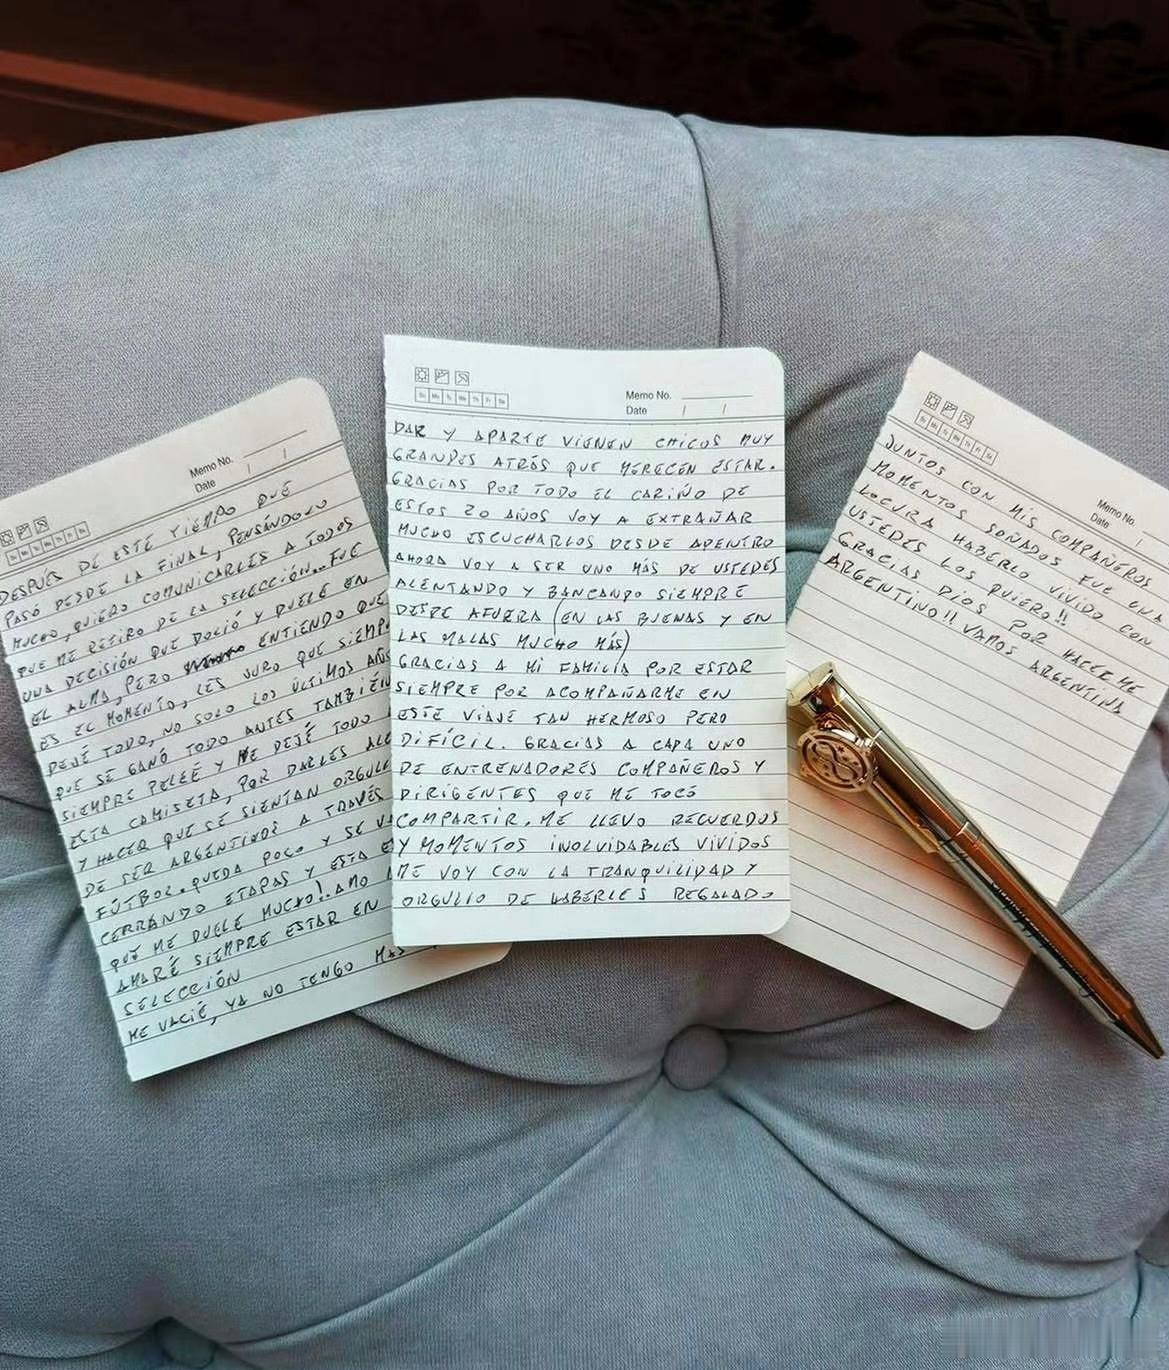 Memo No.
Date / /
DESPUÉS DE ESTE TIEMPO QUE
PASÓ DESDE LA FINAL, PENSÁNDOLO
MUCHO, QUIERO COMUNICARLES A TODOS
QUE ME RETIRO DE LA SELECCIÓN... FUE
UNA DECISIÓN QUE DOLIÓ Y DUELE EN
EL ALMA, PERO ENTIENDO QUE
ES EL MOMENTO, LES JURO QUE SIEMP
DEJÉ TODO, NO SOLO LOS ÚLTIMOS AÑOS
QUE SE GANÓ TODO ANTES TAMBIÉN
SIEMPRE PELEÉ Y ME DEJÉ TODO
ESTA CAMISETA, POR DARLES ALE
Y HACER QUE SE SIENTAN ORGULL
DE SER ARGENTINOS A TRAVÉS
FÚTBOL. QUEDA POCO Y SE VA
CERRANDO ETAPAS Y ESTA E
QUE ME DUELE MUCHO! AMO
AMARÉ SIEMPRE ESTAR EN
SELECCIÓN
ME VACIÉ, YA NO TENGO MÁS
Su Mo Tu We Th Fr Sa
Memo No.
Date / /
DAR Y APARTE VIENEN CHICOS MUY
GRANDES ATRÁS QUE MERECEN ESTAR.
GRACIAS POR TODO EL CARIÑO DE
ESTOS 20 AÑOS VOY A EXTRAÑAR
MUCHO ESCUCHARLOS DESDE ADENTRO
AHORA VOY A SER UNO MÁS DE USTEDES
ALENTANDO Y BANCANDO SIEMPRE
DESDE AFUERA (EN LAS BUENAS Y EN
LAS MALAS MUCHO MÁS)
GRACIAS A MI FAMILIA POR ESTAR
SIEMPRE POR ACOMPAÑARME EN
ESTE VIAJE TAN HERMOSO PERO
DIFÍCIL. GRACIAS A CADA UNO
DE ENTRENADORES COMPAÑEROS Y
DIRIGENTES QUE ME TOCÓ
COMPARTIR. ME LLEVO RECUERDOS
Y MOMENTOS INOLVIDABLES VIVIDOS
ME VOY CON LA TRANQUILIDAD Y
ORGULLO DE HABERLES REGALADO
Memo No.
Date /
JUNTOS CON MIS COMPAÑEROS
MOMENTOS SOÑADOS FUE UNA
LOCURA HABERLO VIVIDO CON
USTEDES LOS QUIERO!!
GRACIAS DIOS POR HACERME
ARGENTINO!! VAMOS ARGENTINA